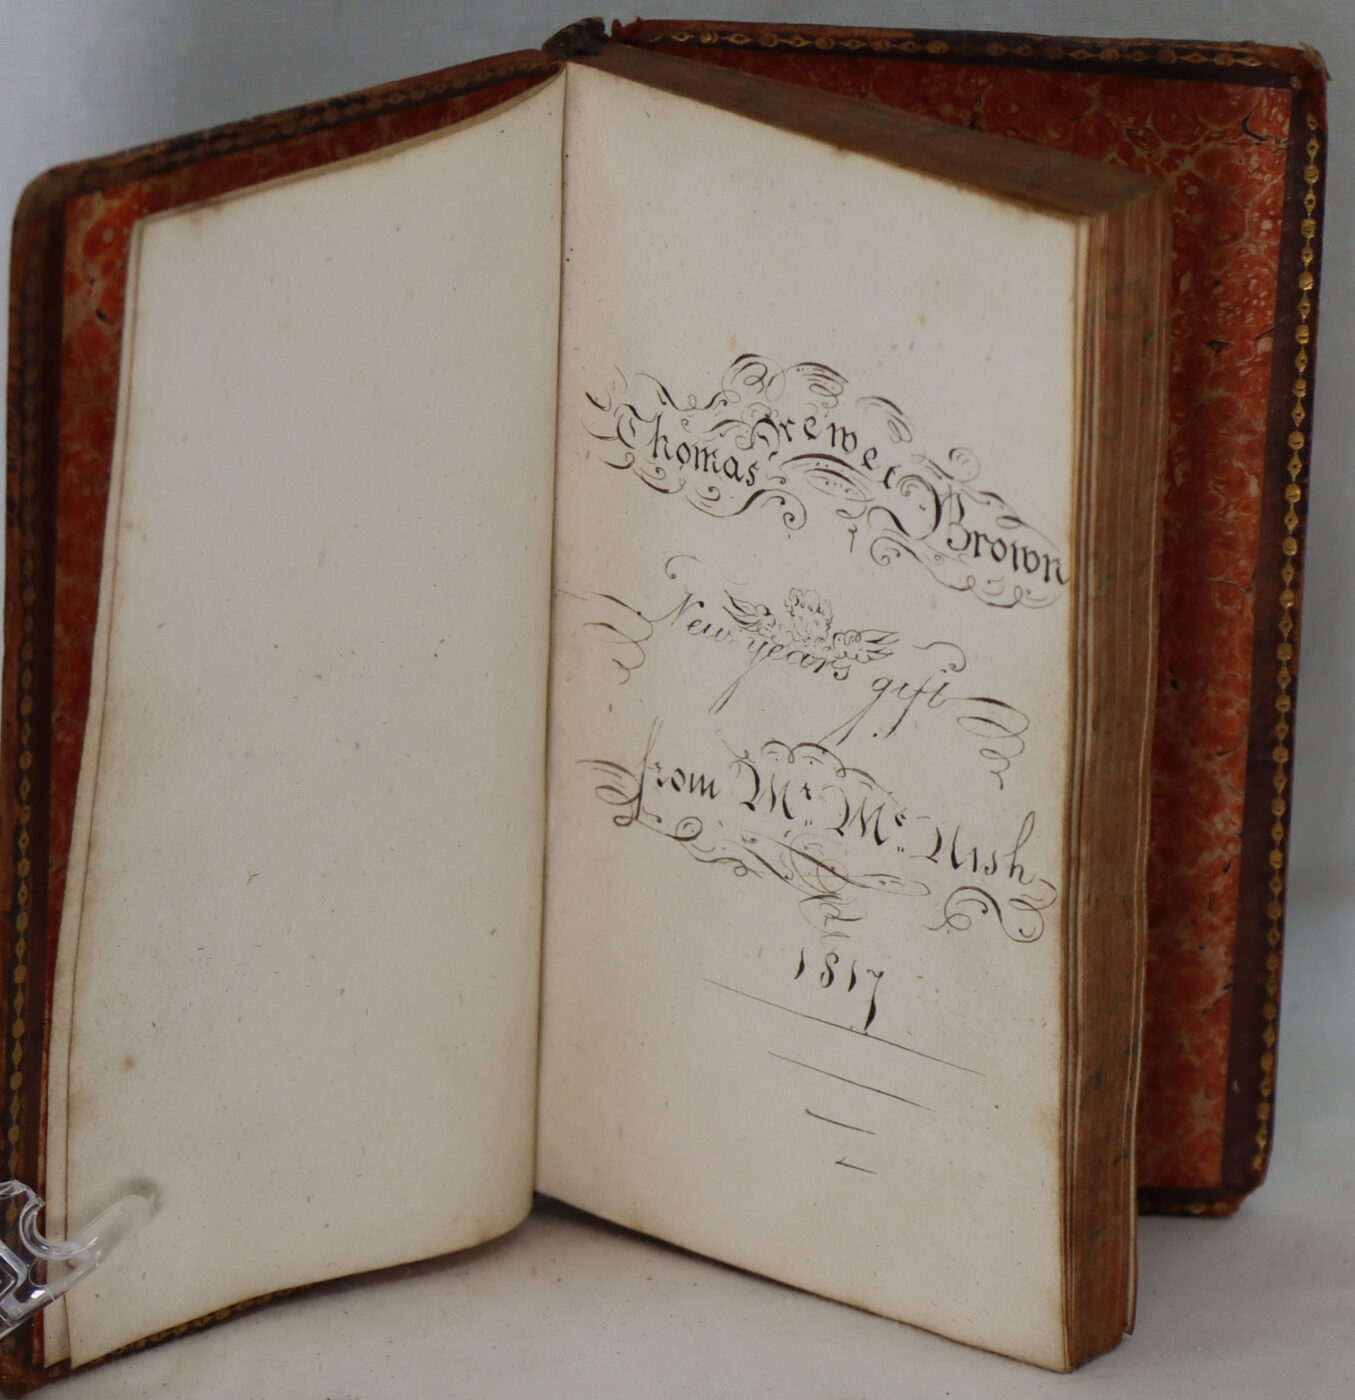 Thomas Brewer Brown
New years gift
from Mr. Mc. Nish
1817